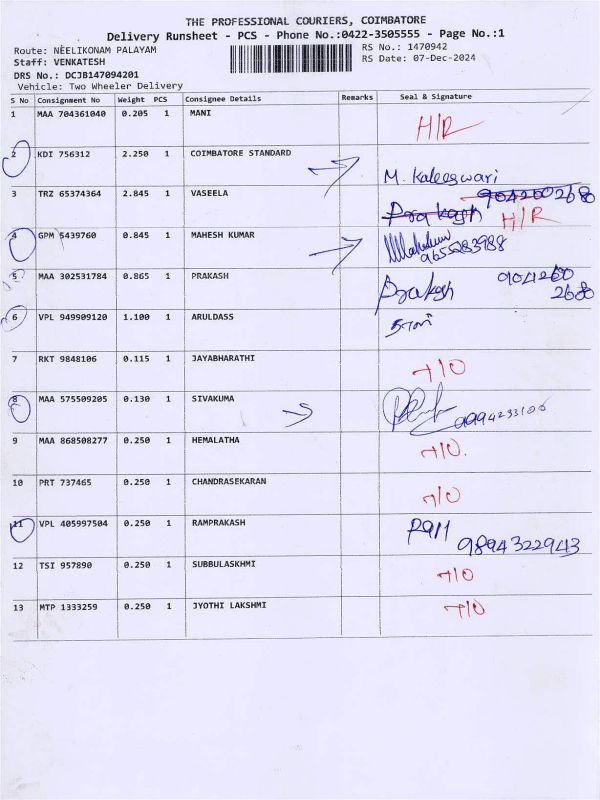 THE PROFESSIONAL COURIERS, COIMBATORE
Delivery Runsheet - PCS - Phone No.:0422-3505555 - Page No.:1
Route: NEELIKONAM PALAYAM
RS No.: 1470942
Staff: VENKATESH
RS Date: 07-Dec-2024
DRS No.: DCJB147094201
Vehicle: Two Wheeler Delivery
S No Consignment No Weight PCS Consignee Details Remarks Seal & Signature
1 MAA 704361040 0.205 1 MANI H/R
2 KDI 756312 2.250 1 COIMBATORE STANDARD M. Kaleeswari
3 TRZ 65374364 2.845 1 VASEELA Prakash 9042602680 H/R
4 GPM 5439760 0.845 1 MAHESH KUMAR
9655283988
5 MAA 302531784 0.865 1 PRAKASH Prakash 904260
2680
6 VPL 949909120 1.100 1 ARULDASS
7 RKT 9848106 0.115 1 JAYABHARATHI
8 MAA 575509205 0.130 1 SIVAKUMA
9 MAA 868508277 0.250 1 HEMALATHA
10 PRT 737465 0.250 1 CHANDRASEKARAN
11 VPL 405997504 0.250 1 RAMPRAKASH
9894322943
12 TSI 957890 0.250 1 SUBBULASKHMI
13 MTP 1333259 0.250 1 JYOTHI LAKSHMI